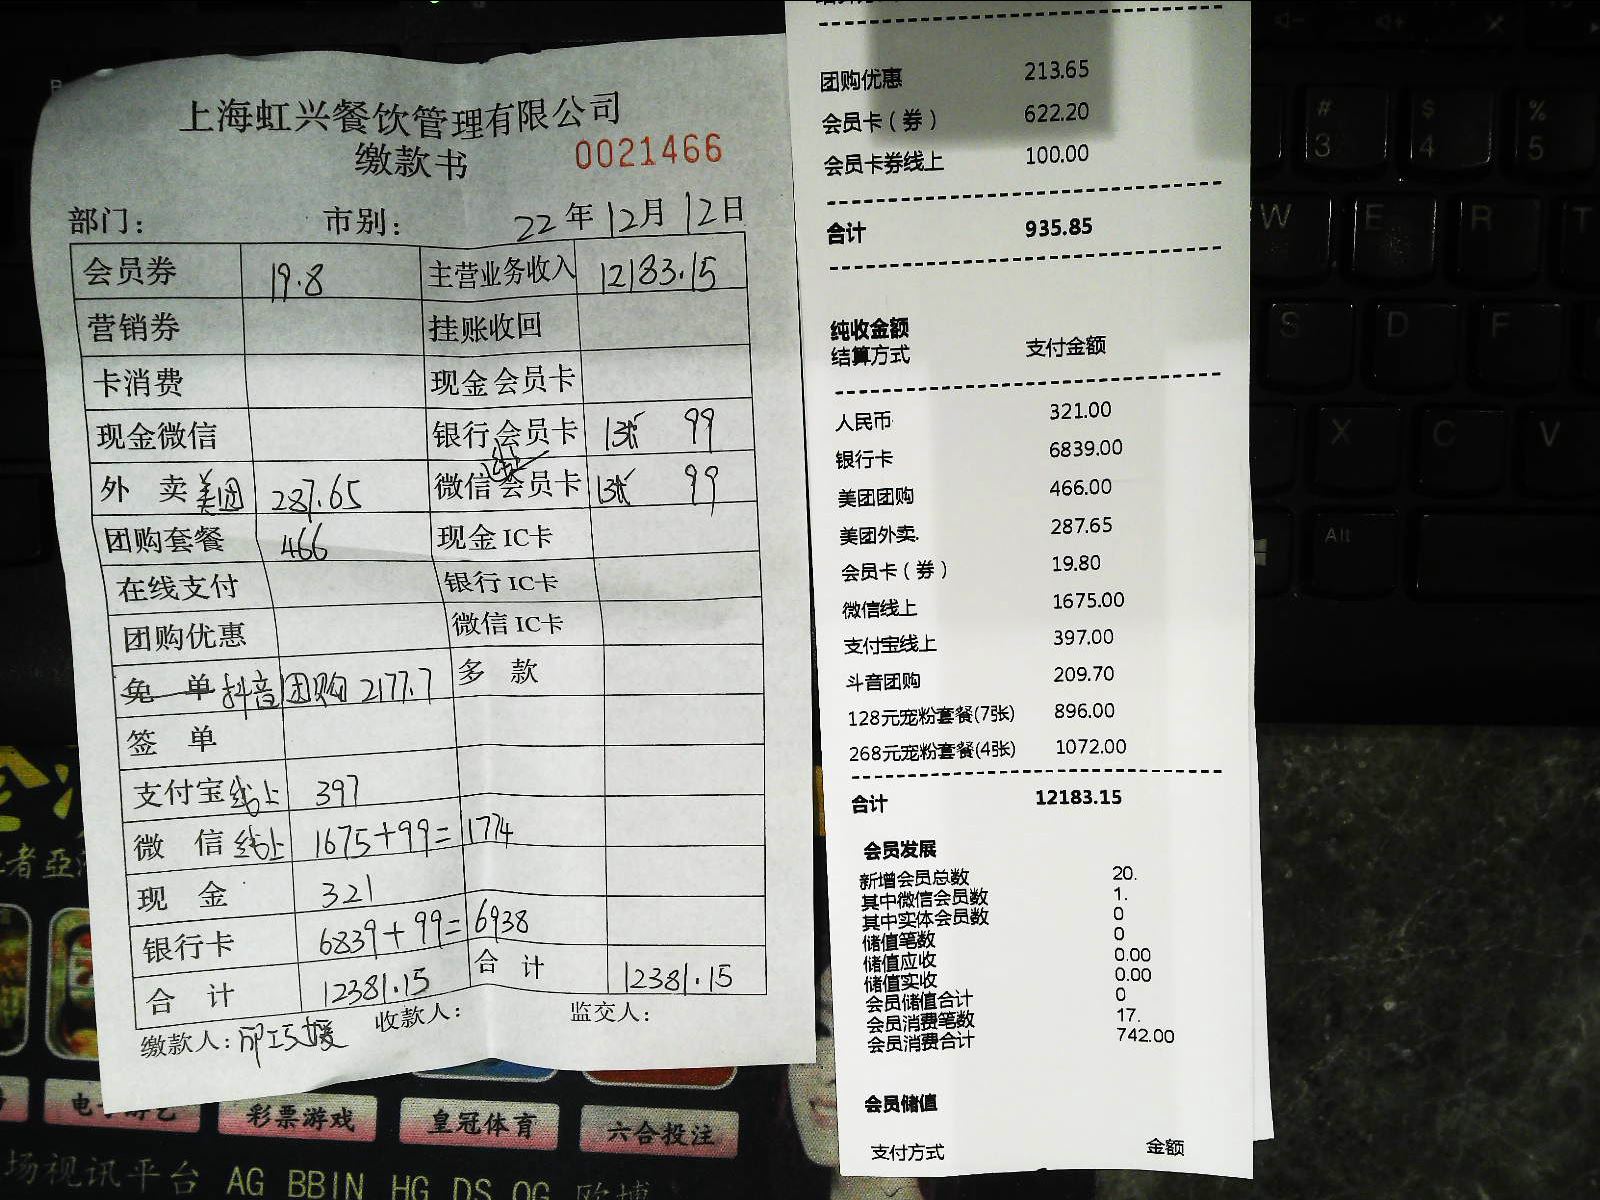 上海虹兴餐饮管理有限公司
缴款书
0021466
部门： 市别： 22年12月12日
会员券 19.8 主营业务收入 12183.15
营销券 挂账收回
卡消费 现金会员卡
现金微信 银行会员卡 1张 99
外 卖 美团 287.65 微信会员卡 线上 1张 99
团购套餐 466 现金IC卡
在线支付 银行IC卡
团购优惠 微信IC卡
免 单 抖音团购 2177.7 多 款
签 单
支付宝线上 397
微 信 线上 1675+99=1774
现 金 321
银行卡 6839+99=6938
合 计 12381.15 合 计 12381.15
缴款人： 收款人： 监交人：
团购优惠 213.65
会员卡（券） 622.20
会员卡券线上 100.00
合计 935.85
纯收金额
结算方式 支付金额
人民币 321.00
银行卡 6839.00
美团团购 466.00
美团外卖. 287.65
会员卡（券） 19.80
微信线上 1675.00
支付宝线上 397.00
斗音团购 209.70
128元宠粉套餐(7张) 896.00
268元宠粉套餐(4张) 1072.00
合计 12183.15
会员发展
新增会员总数 20.
其中微信会员数 1.
其中实体会员数 0
储值笔数 0
储值应收 0.00
储值实收 0.00
会员储值合计 0
会员消费笔数 17.
会员消费合计 742.00
会员储值
支付方式 金额
彩票游戏
皇冠体育
六合投注
场视讯平台 AG BBIN HG DS OG
# 3
$ 4
% 5
W
E
R
T
S
D
F
X
C
V
Alt